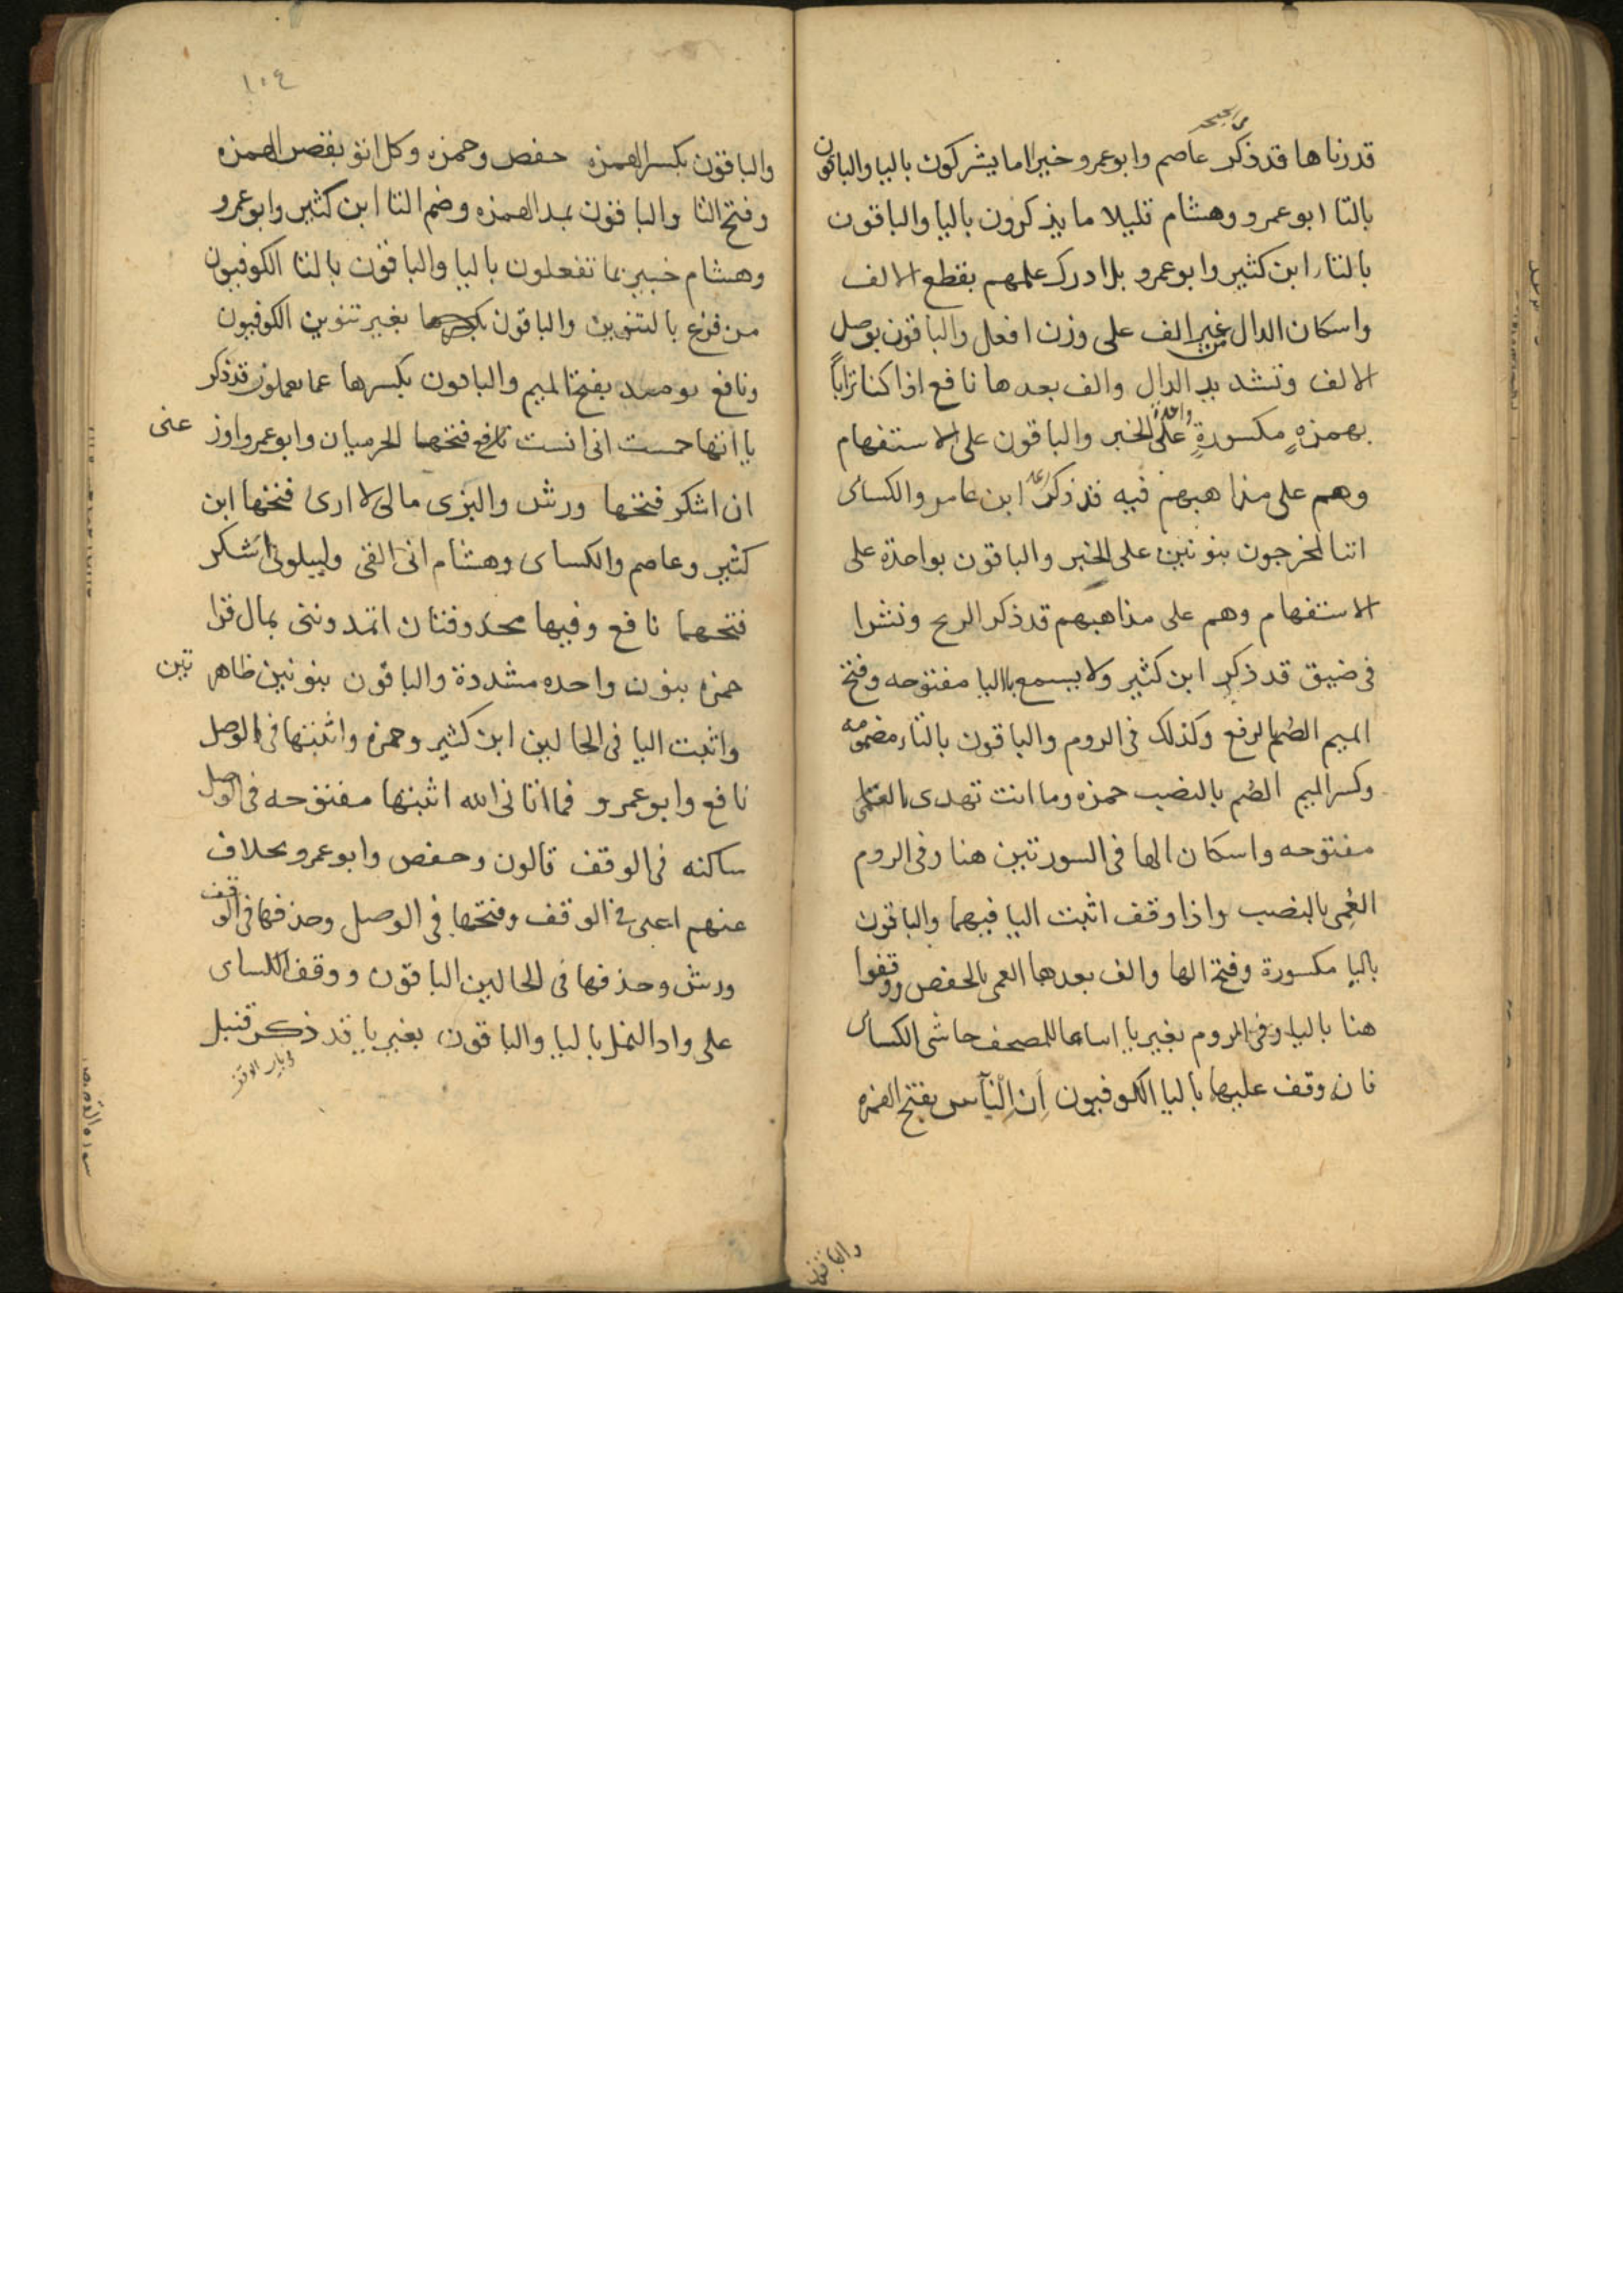 في الحجر
قدرناها قد ذكر عاصم وابو عمرو خير اما يشركون باليا والباقون
بالتا ابو عمرو وهشام قليلا ما يذكرون باليا والباقون
بالتا ابن كثير وابو عمرو بل ادرك علمهم بقطع الالف
واسكان الدال من غير الف على وزن افعل والباقون بوصل
الالف وتشديد الدال والف بعدها نافع اذا كنا تراباً
بهمزةٍ مكسورةٍ واحدة على الخبر والباقون على الاستفهام
وهم على مذاهبهم فيه قد ذكر ابن عامر والكساى
اننا لمخرجون بنونين على الخبر والباقون بواحدة على
الاستفهام وهم على مذاهبهم قد ذكر الريح ونشرا
فى ضيق قد ذكر ابن كثير ولا يسمع باليا مفتوحه وفتح
الميم الصُم بالرفع وكذلك فى الروم والباقون بالتاء مضمومه
وكسر الميم الصُم بالنصب حمزه وما انت تهدى بالتا
مفتوحه واسكان الها فى السورتين هنا وفى الروم
العُمى بالنصب واذا وقف اثبت اليا فيهما والباقون
بالبا مكسورة وفتح الها والف بعدها العمى بالخفض ووقفوا
هنا باليا وفى الروم بغير يا اتباعا للمصحف حاشى الكساى
فانه وقف عليهما باليا الكوفيون أن النّاس بفتح الهمزه
والباقون
١٠٤
والباقون بكسر الهمزه حفص وحمزه وكل اتوه بقصر الهمزه
وفتح التا والباقون بمد الهمزه وضم التا ابن كثير وابو عمرو
وهشام خبير بما تفعلون باليا والباقون بالتا الكوفيون
من فزع بالتنوين والباقون بغير تنوين الكوفيون
ونافع يومىذ بفتح الميم والباقون بكسرها عما تعملون قد ذكر
يا اتها خمست انى انست نافع فتحها الحرميان وابو عمرو اوز عنى
ان اشكر فتحها ورش والبزى مالى لا ارى فتحها ابن
كثير وعاصم والكساى وهشام انى القى وليبلونى ااشكر
فتحهما نافع وفيها محذوفتان اتمدونى بمال قرا
حمزه بنون واحده مشددة والباقون بنونين ظاهر تين
واثبت اليا فى الحالين ابن كثير وحمزه واثبتها فى الوصل
نافع وابو عمرو فما اتانى الله اثبتها مفتوحه فى الوصل
ساكنه فى الوقف قالون وحفص وابو عمرو بخلاف
عنهم اعنى فى الوقف وفتحها فى الوصل وحذفها فى الوقف
ورش وحذفها فى الحالين الباقون ووقف الكساى
على واد النمل باليا والباقون بغير يا قد ذكر قنبل
فى باب الوقف